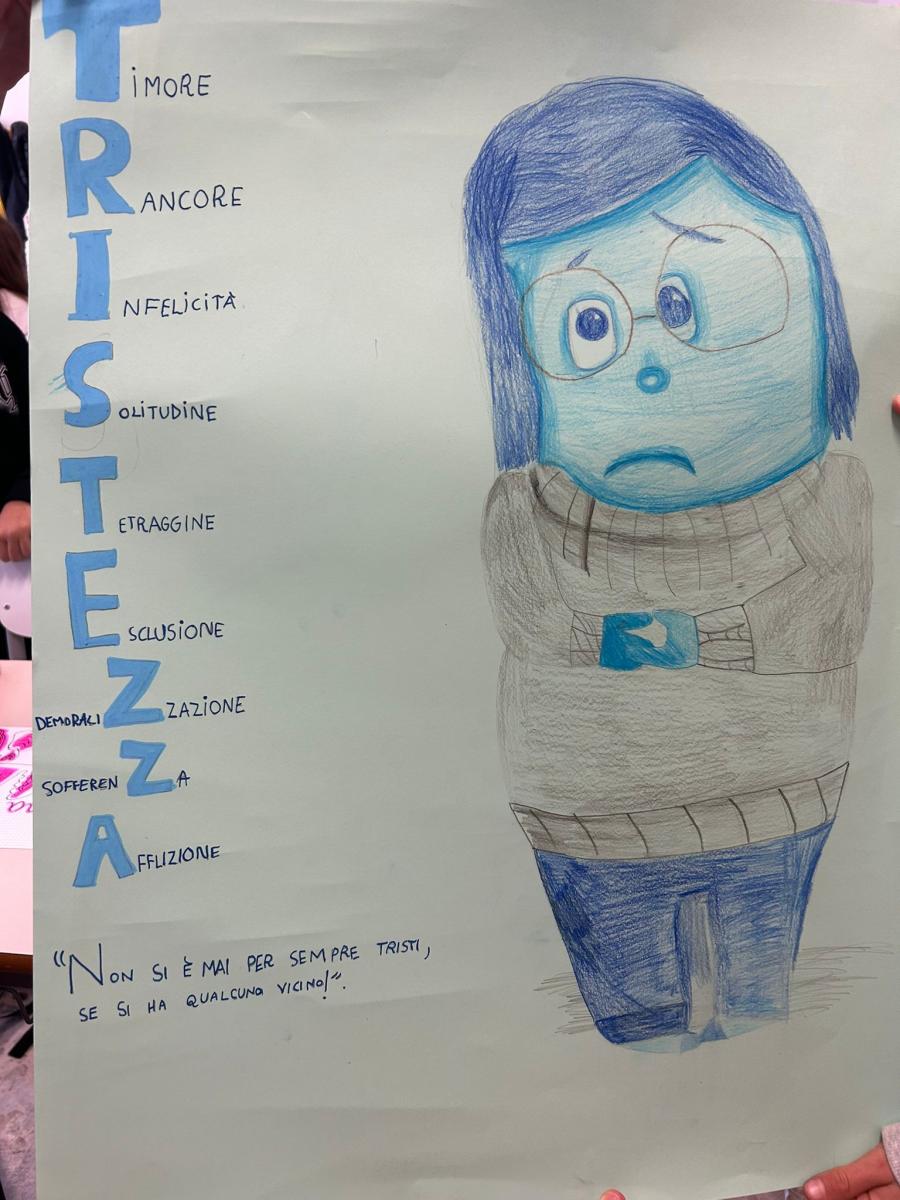 TIMORE
RANCORE
INFELICITÀ
SOLITUDINE
TETRAGGINE
ESCLUSIONE
DEMORALIZZAZIONE
SOFFERENZA
AFFLIZIONE
“NON SI È MAI PER SEMPRE TRISTI,
SE SI HA QUALCUNO VICINO!”.